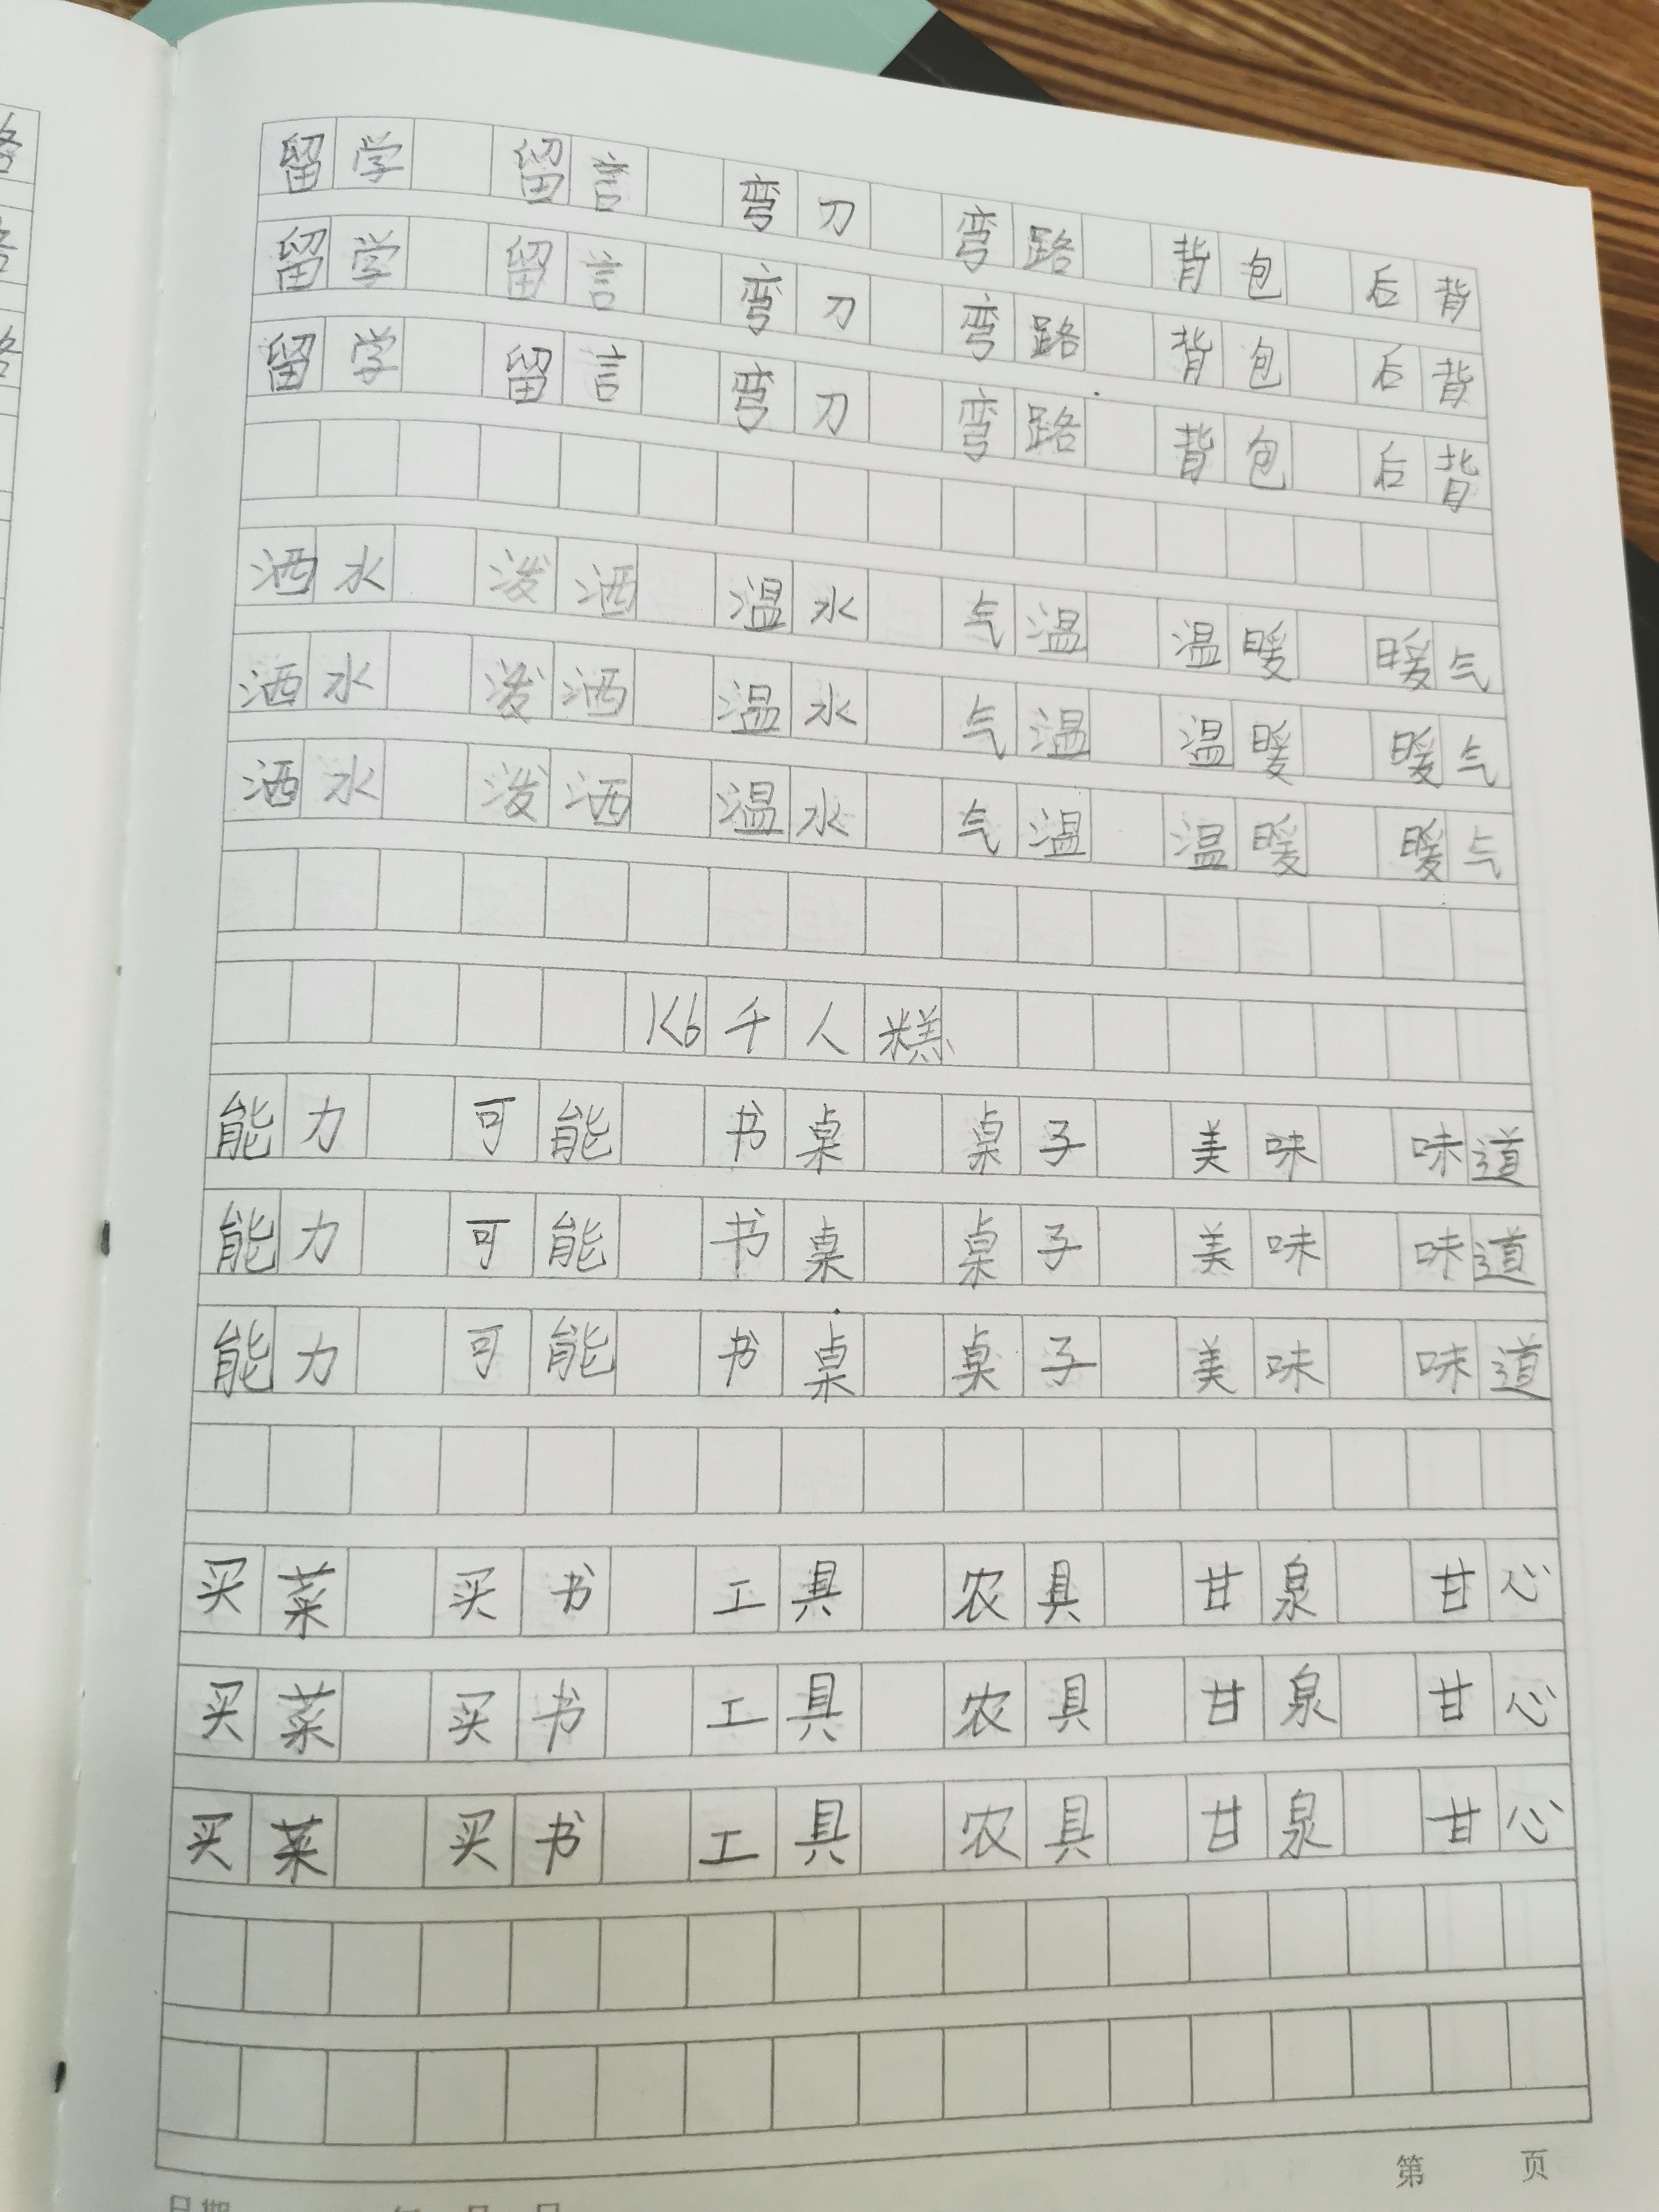 留学 留言 弯刀 弯路 背包 后背
留学 留言 弯刀 弯路 背包 后背
留学 留言 弯刀 弯路 背包 后背
洒水 泼洒 温水 气温 温暖 暖气
洒水 泼洒 温水 气温 温暖 暖气
洒水 泼洒 温水 气温 温暖 暖气
K6千人糕
能力 可能 书桌 桌子 美味 味道
能力 可能 书桌 桌子 美味 味道
能力 可能 书桌 桌子 美味 味道
买菜 买书 工具 农具 甘泉 甘心
买菜 买书 工具 农具 甘泉 甘心
买菜 买书 工具 农具 甘泉 甘心
第 页